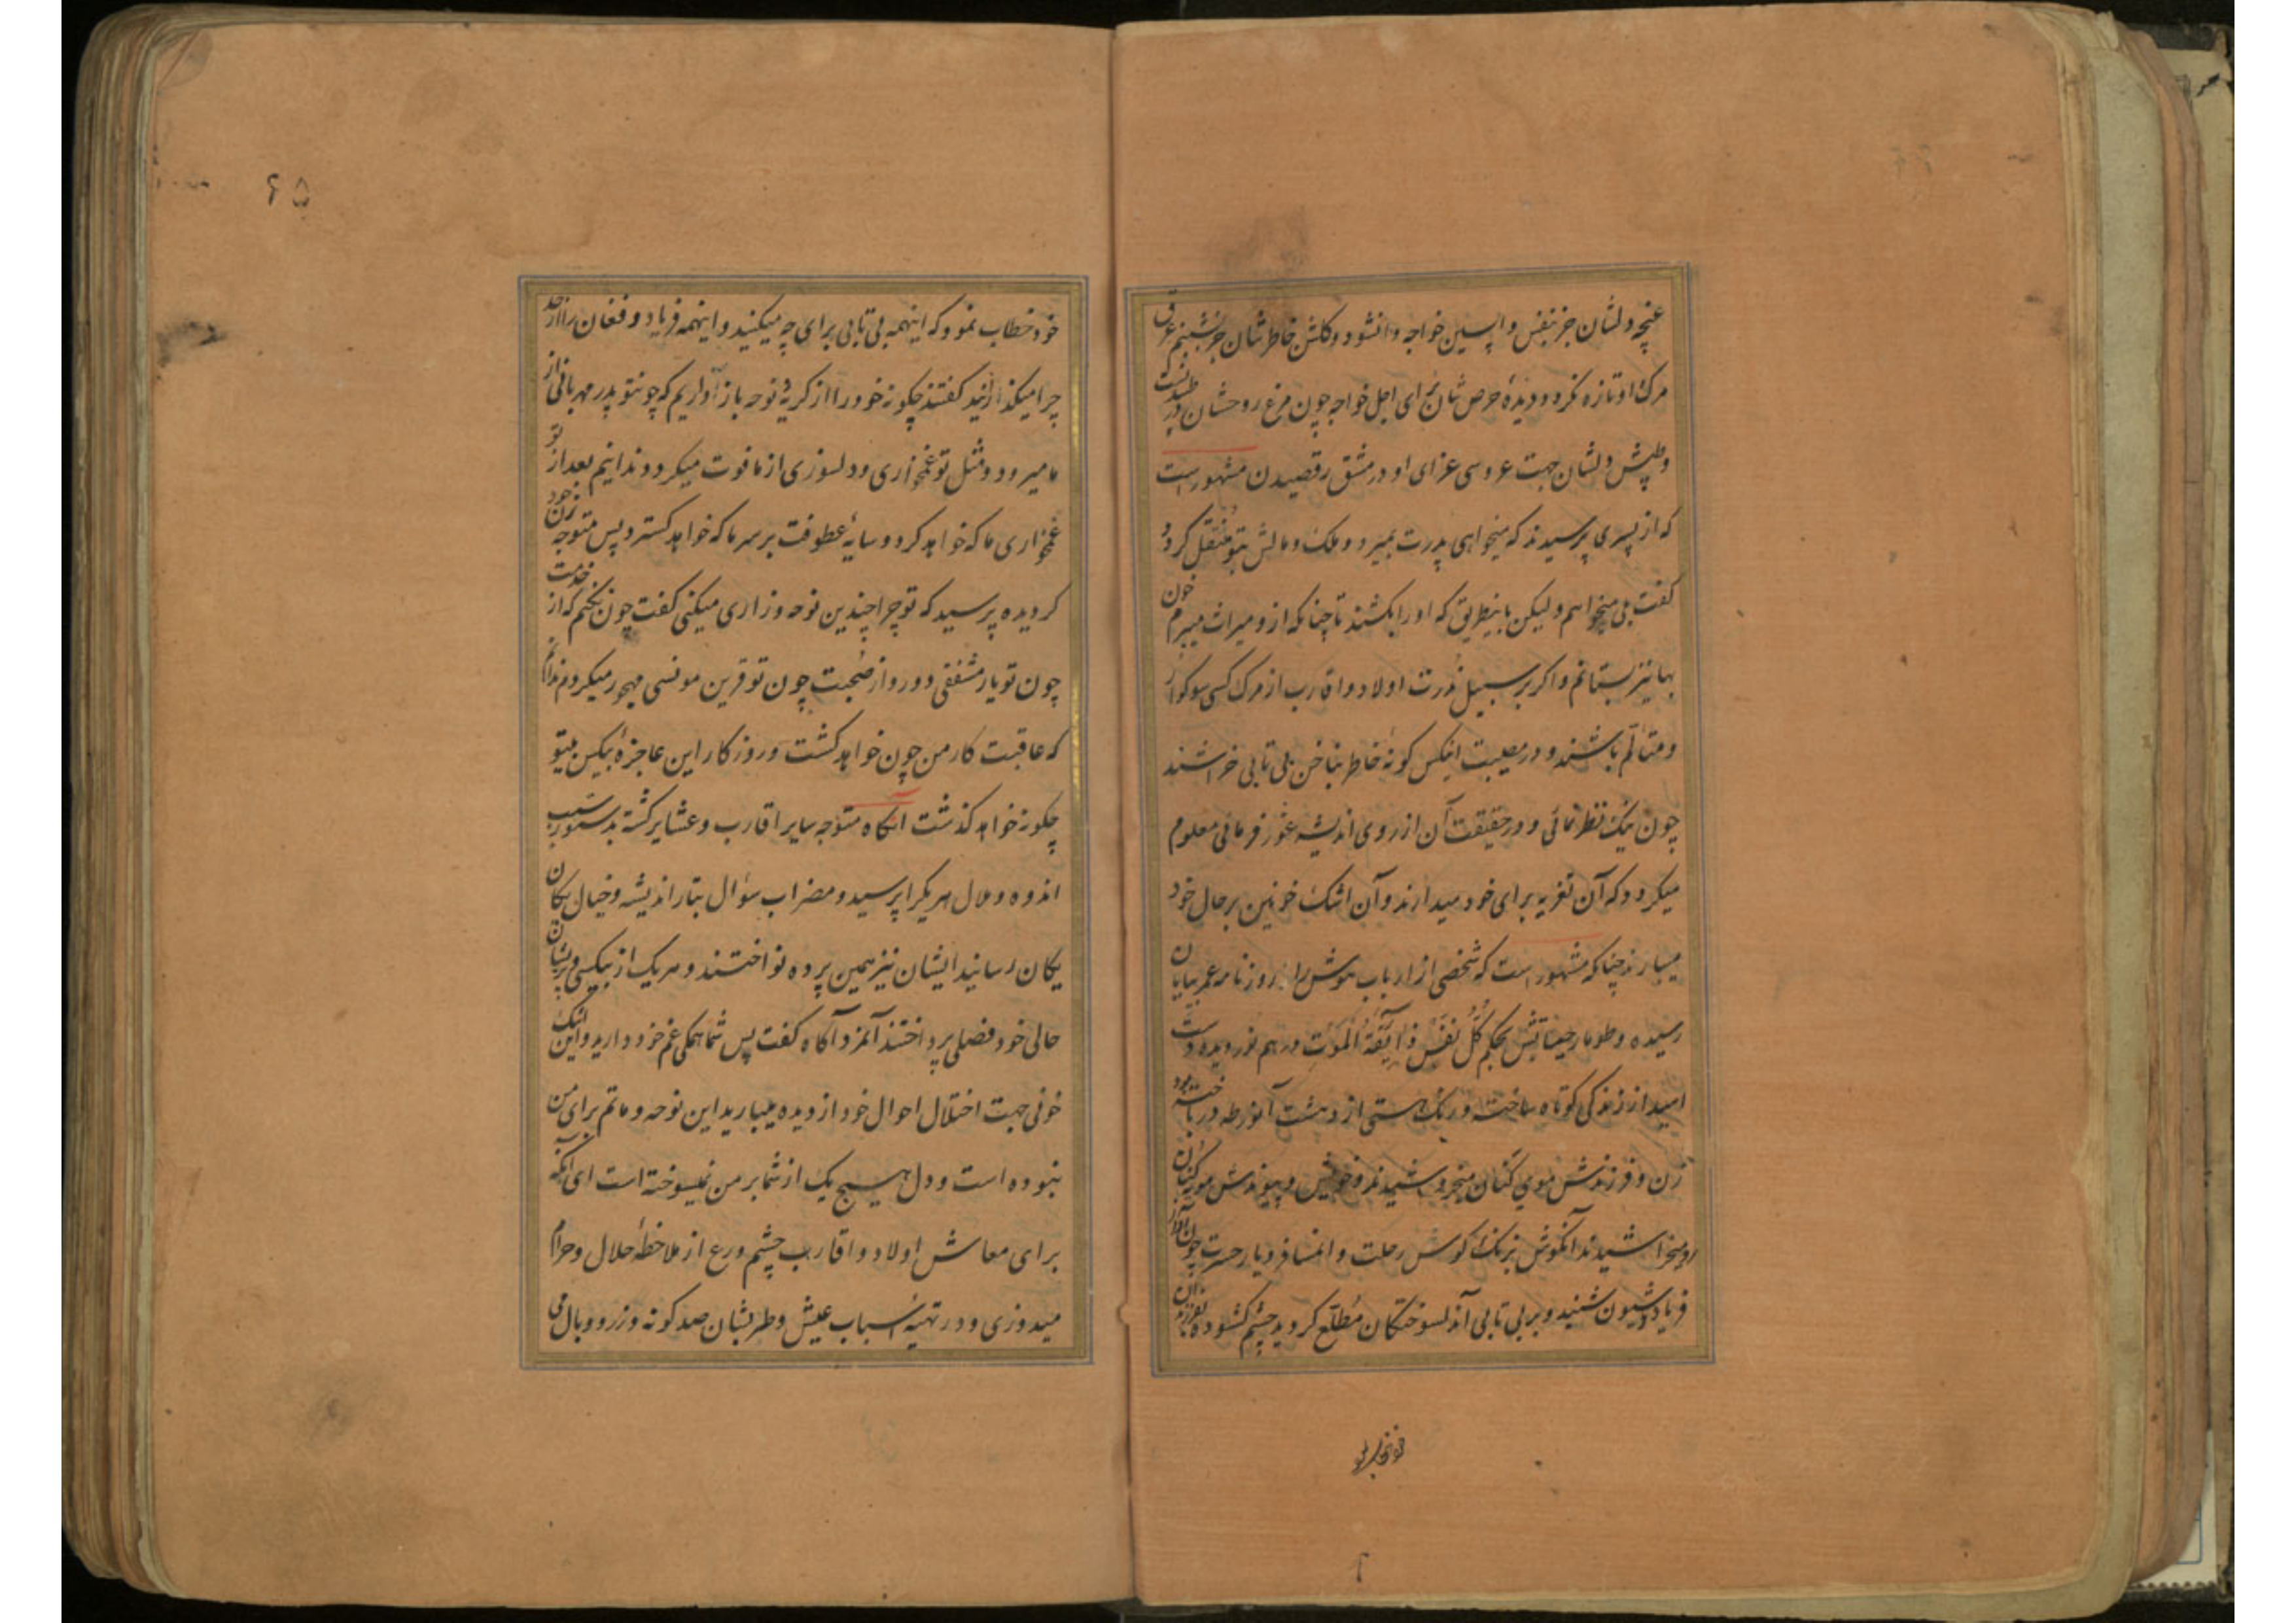 غنچه دلشان جز بنفس واپسین خواجه وانشود و کلشن خاطرشان جز بشبنم عرق
مرک او تازه نکردد و دیدهٔ حرص شان برای اجل خواجه چون مرغ روحشان در طپیدنست
وطپش دلشان جهت عروسی عزای او در مشق رقصیدن مشهور است
که از پسری پرسیدند که میخواهی پدرت بمیرد و ملک و مالش بتو منتقل کردد
کفت بلی میخواهم ولیکن باینطریق که او را بکشند تا چنانکه ازو میراث میبرم خون
بها نیز بستانم و اکر بر سبیل ندرت اولاد و اقارب از مرک کسی سوکوار
و متالم باشند و در مصیبت انیکس کونهٔ خاطر بناخن بی تابی خراشند
چون نیک نظر نمائی و در حقیقت آن از روی اندیشه غور فرمائی معلوم
میکردد که آن تعزیه برای خود میدارند و آن اشک خونین بر حال خود
میبارند چنانکه مشهور است که شخصی از ارباب هوش را روزنامه عمر بپایان
رسیده و طومار حیاتش بحکم کل نفس ذائقة الموت در هم نوردیده دست
امید از زندکی کوتاه ساخته و رنک هستی از دهشت آنورطه در باخته بود
زن و فرزندش موی کنان میخروشیدند و خویش و پیوندش مویه کنان
رو میخراشیدند آنکوش بزنک کوس رحلت و انمسافر دیار حسرت چون آواز
فریاد و شیون شنید و بر بی تابی آندلسوختکان مطلع کردید چشم کشوده بفرزندان
۶۵
خود خطاب نمود که اینهمه بی تابی برای چه میکنید و اینهمه فریاد و فغان را از حد
چرا میکذرانید کفتند چکونه خود را از کریه و نوحه باز آواریم که چونتو پدر مهربانی از
ما میرود و مثل تو غمخواری و دلسوزی از ما فوت میکردد و ندانیم بعد از تو
غمخواری ما که خواهد کرد و سایهٔ عطوفت بر سر ما که خواهد کسترد پس متوجه زن خود
کردیده پرسید که تو چرا چندین نوحه و زاری میکنی کفت چون نکنم که از خدمت
چون تو یار مشفقی دور و از صحبت چون تو قرین مونسی مهجور میکردم ندانم
که عاقبت کار من چون خواهد کشت و روزکار این عاجزهٔ بیکس بیتو
چکونه خواهد کذشت آنکاه متوجه سایر اقارب و عشایر کشته بدستور سبب
اندوه و ملال هر یکرا پرسید و مضراب سؤال بتار اندیشه و خیال یکان
یکان رسانید ایشان نیز همین پرده نواختند و هر یک از بیکسی و پریشان
حالی خود فصلی پرداختند آنمرد آکاه کفت پس شما همکی غم خود دارید و این اشک
خونی جهت اختلال احوال خود از دیده میبارید این نوحه و ماتم برای من
نبوده است و دل هیچ یک از شما بر من نمیسوخته است ای آنکه
برای معاش اولاد و اقارب چشم ورع از ملاحظهٔ حلال و حرام
میدوزی و در تهیهٔ اسباب عیش و طربشان صد کونه وزر و وبال می